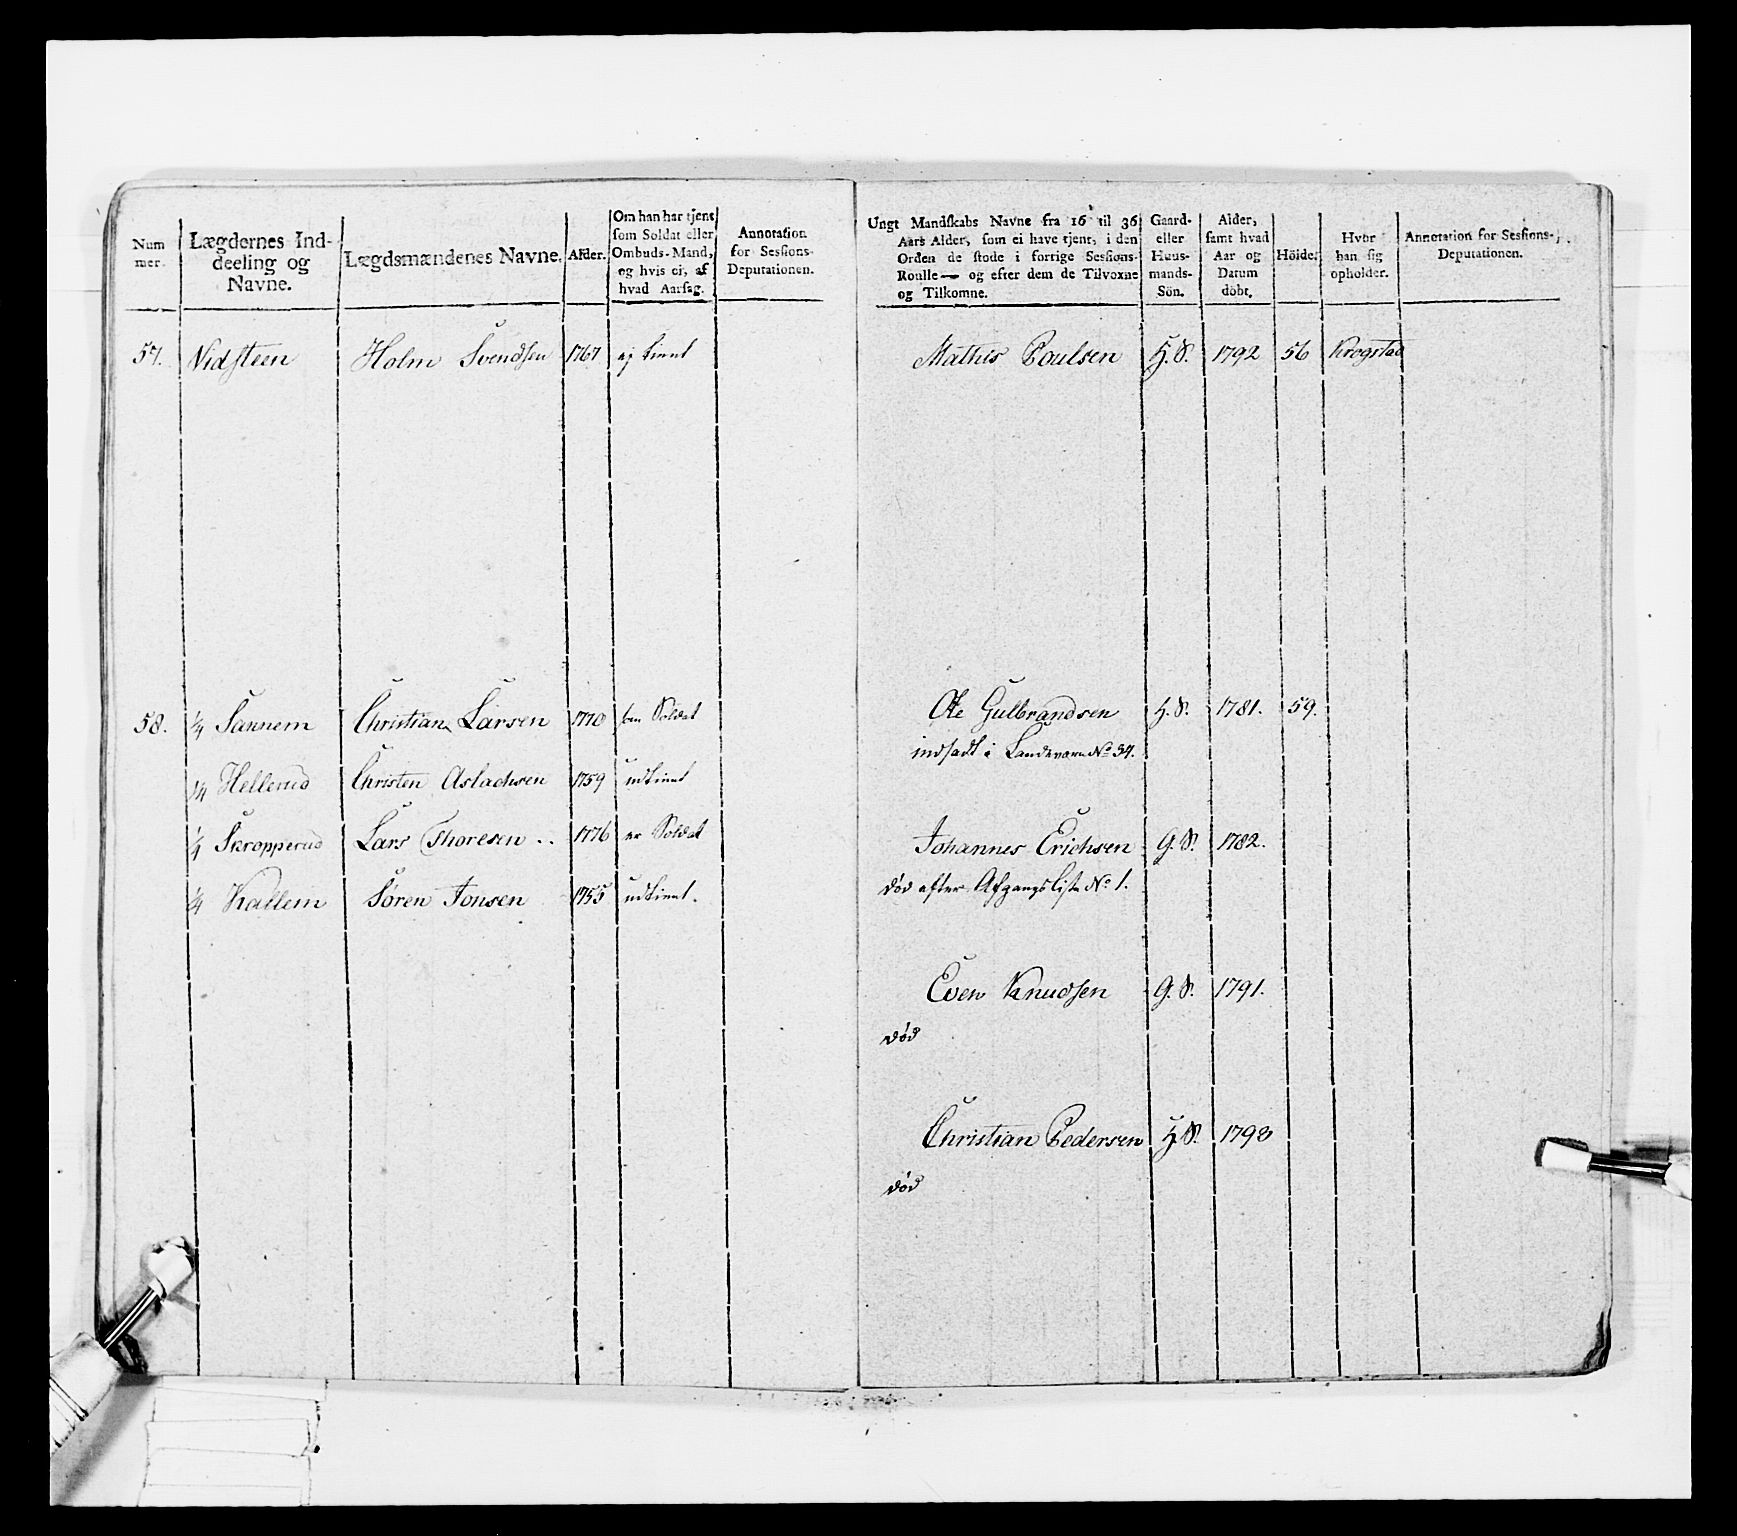 Num
mer.
Lægdernes Ind-
deeling og
Navne.
Lægdsmændenes Navne.
Alder.
Om han har tjent
som Soldat eller
Ombuds-Mand,
og hvis ei, af
hvad Aarsag.
Annotation
for Sessions-
Deputationen.
57. Nidsteen Holm Svendsen 1767 ej tient
58. 1/4 Sannem Christian Larsen 1770 Soldat
1/4 Hellerud Christen Aslachsen 1759 udtient
1/4 Skropperud Lars Thoresen .. 1776 er Soldat
1/4 Kallem Søren Jonsen 1755 udtient.
Ungt Mandskabs Navne fra 16 til 36
Aars Alder, som ei have tjent, i den
Orden de stode i forrige Sessions-
Roulle — og efter dem de Tilvoxne
og Tilkomne.
Gaard-
eller
Huus-
mands-
Sön.
Alder,
samt hvad
Aar og
Datum
döbt.
Höide.
Hvor
han sig
opholder.
Annotation for Sessions-
Deputationen.
Mathis Poulsen H.S. 1792 56 Krogstad
Ole Gulbrandsen H.S. 1781. 59.
indsadt i Landeværn No 34.
Johannes Erichsen G.S. 1782.
død after Afgangsliste No 1.
Even Knudsen G.S. 1791.
død
Christian Pedersen H.S. 1793
død